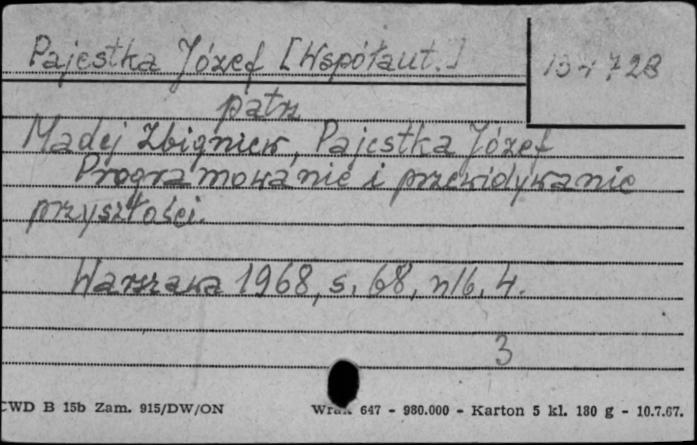 Pajestka Józef [Współaut.]
patrz
Madej Zbigniew, Pajestka Józef
Programowanie i przewidywanie
przyszłości.
Warszawa 1968, s. 68, nlb. 4.
3
CWD B 15b Zam. 915/DW/ON
647 - 980.000 - Karton 5 kl. 180 g - 10.7.67.